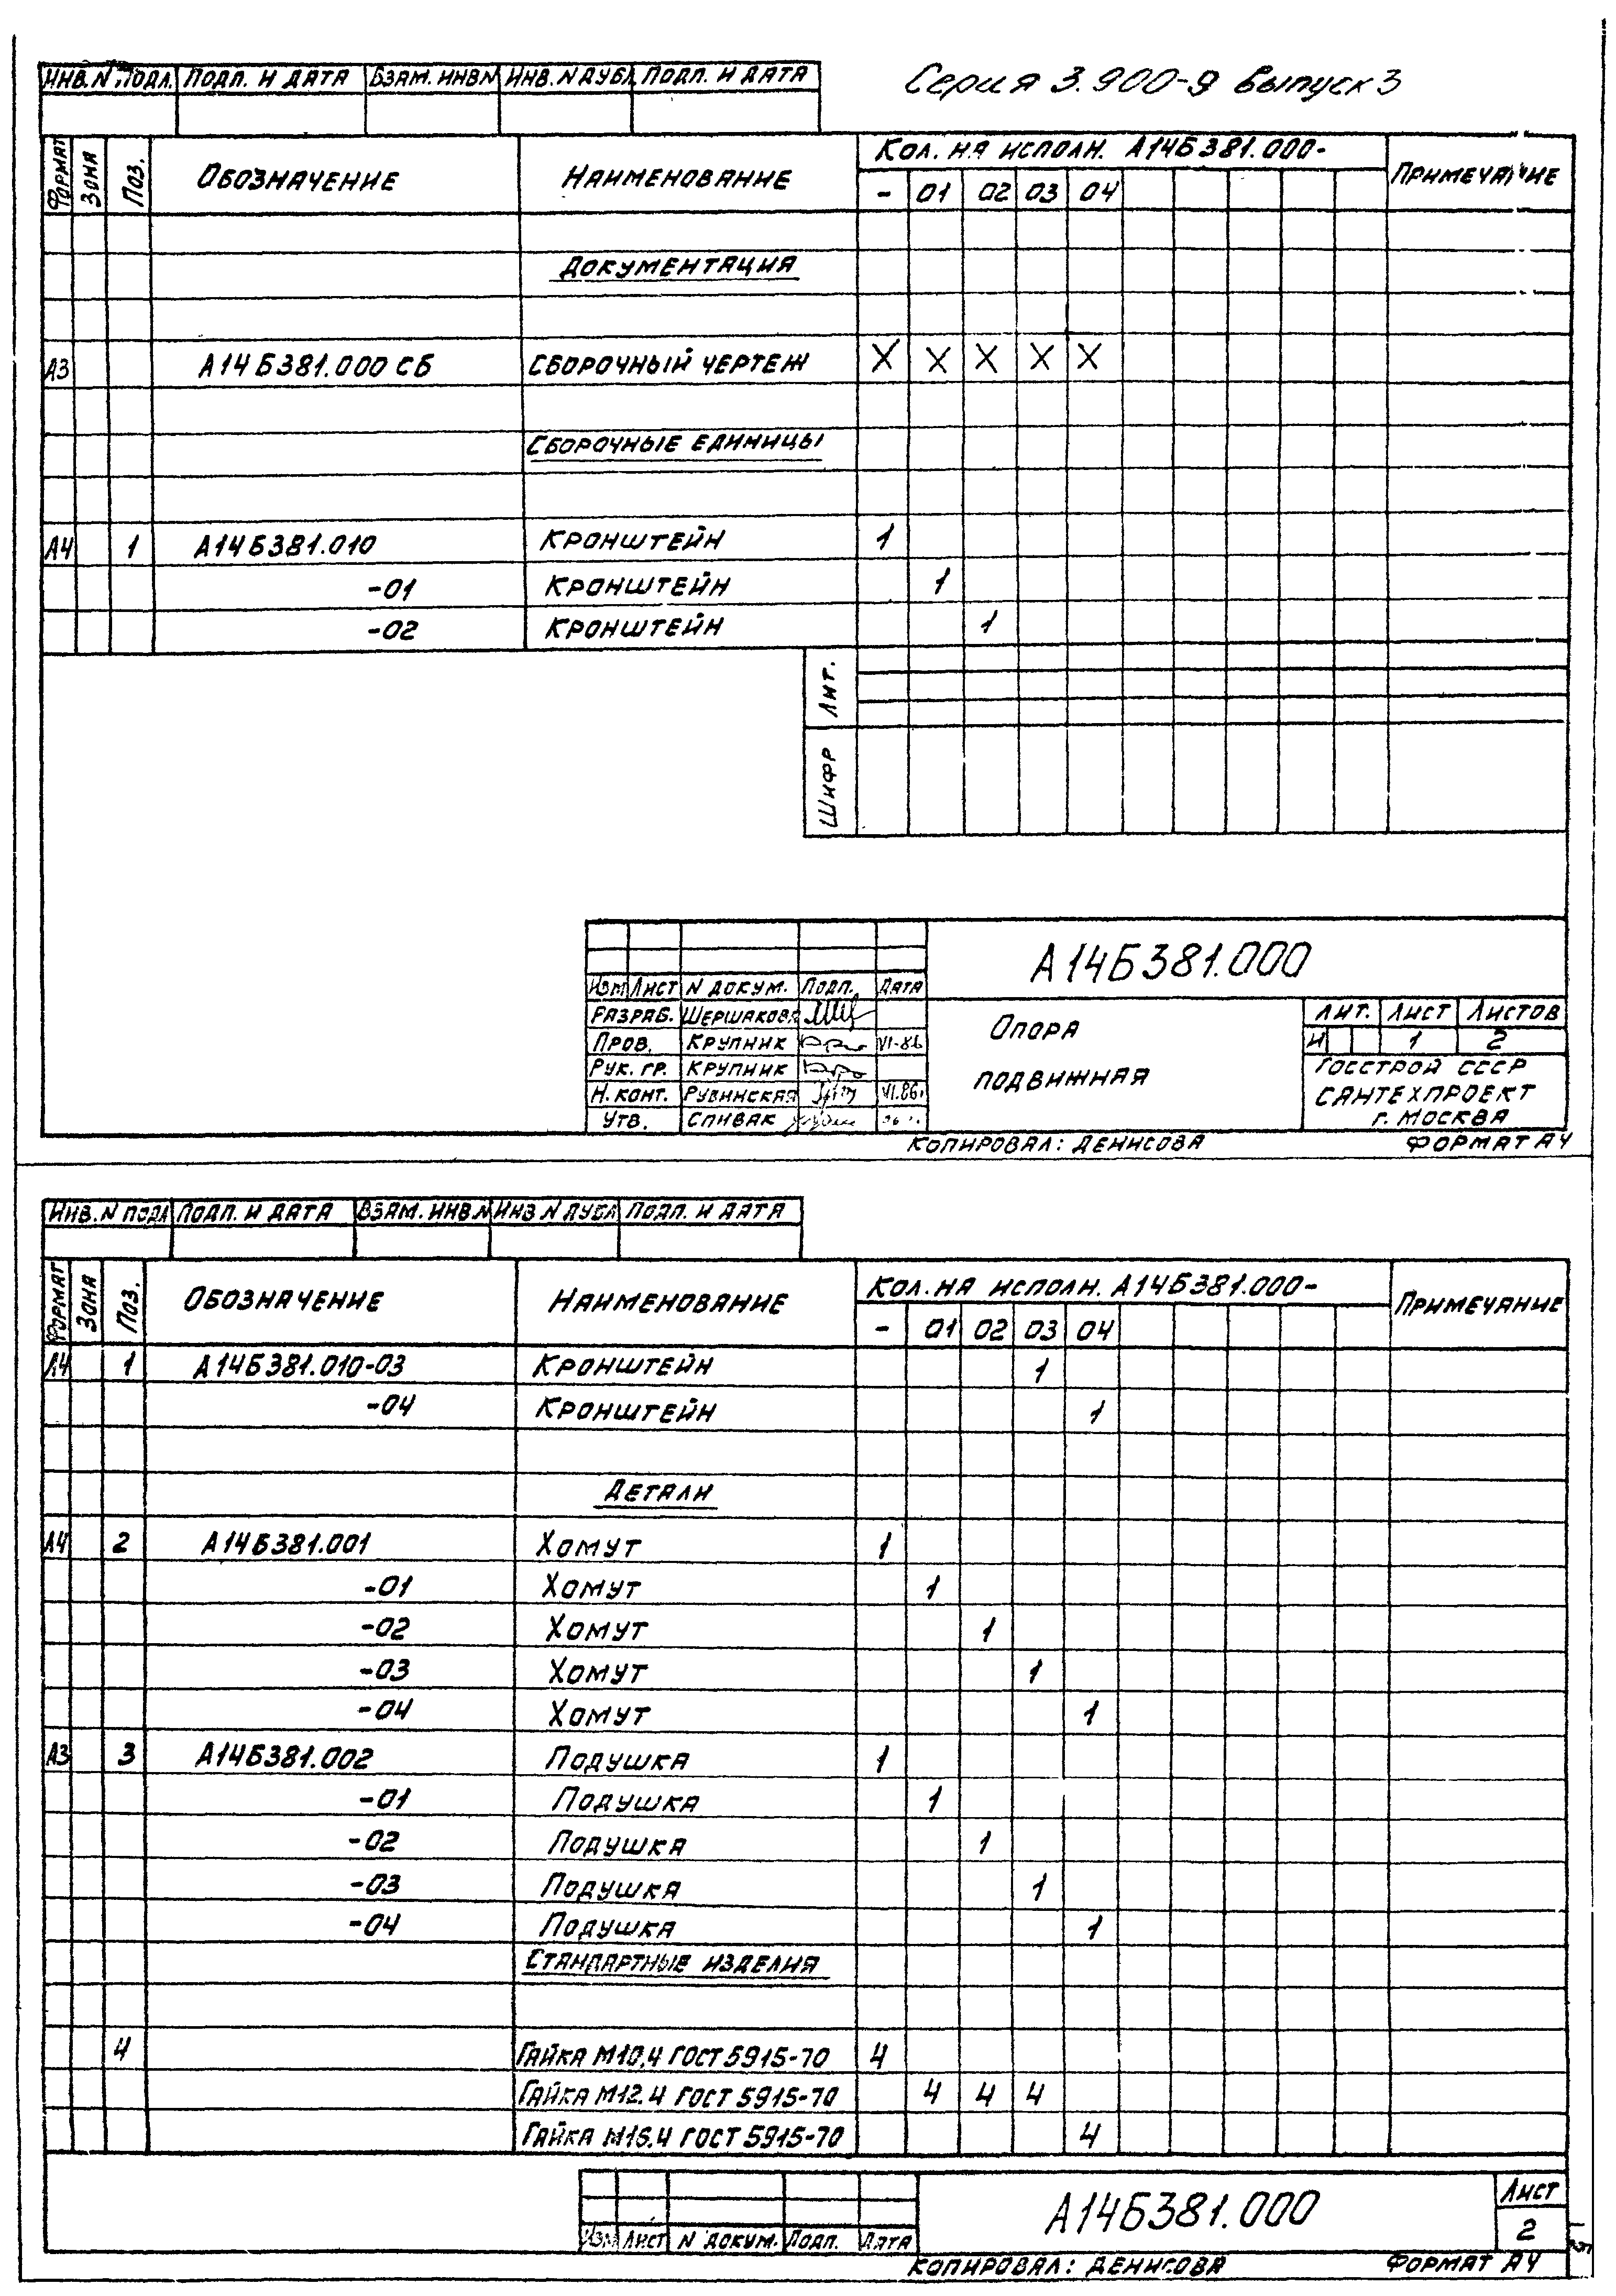 Серия 3.900-9 Выпуск 3
ИНВ. N ПОДЛ. ПОДП. И ДАТА ВЗАМ. ИНВ. N ИНВ. N ДУБЛ. ПОДП. И ДАТА
ФОРМАТ ЗОНА ПОЗ. ОБОЗНАЧЕНИЕ НАИМЕНОВАНИЕ КОЛ. НА ИСПОЛН. А14Б381.000- ПРИМЕЧАНИЕ
- 01 02 03 04
ДОКУМЕНТАЦИЯ
А3 А14Б381.000 СБ СБОРОЧНЫЙ ЧЕРТЕЖ X X X X X
СБОРОЧНЫЕ ЕДИНИЦЫ
А4 1 А14Б381.010 КРОНШТЕЙН 1
-01 КРОНШТЕЙН 1
-02 КРОНШТЕЙН 1
ЛИТ.
ШИФР
А14Б381.000
ИЗМ ЛИСТ N ДОКУМ. ПОДП. ДАТА
РАЗРАБ. ШЕРШАКОВА
ПРОВ. КРУПНИК VI-86
РУК. ГР. КРУПНИК
Н. КОНТ. РУБИНСКАЯ VI.86г.
УТВ. СПИВАК
ОПОРА
ПОДВИЖНАЯ
ЛИТ. ЛИСТ ЛИСТОВ
И 1 2
ГОССТРОЙ СССР
САНТЕХПРОЕКТ
г. МОСКВА
КОПИРОВАЛ: ДЕНИСОВА ФОРМАТ А4
ИНВ. N ПОДЛ ПОДП. И ДАТА ВЗАМ. ИНВ. N ИНВ N ДУБЛ ПОДП. И ДАТА
ФОРМАТ ЗОНА ПОЗ. ОБОЗНАЧЕНИЕ НАИМЕНОВАНИЕ КОЛ. НА ИСПОЛН. А14Б381.000- ПРИМЕЧАНИЕ
- 01 02 03 04
А4 1 А14Б381.010-03 КРОНШТЕЙН 1
-04 КРОНШТЕЙН 1
ДЕТАЛИ
А4 2 А14Б381.001 ХОМУТ 1
-01 ХОМУТ 1
-02 ХОМУТ 1
-03 ХОМУТ 1
-04 ХОМУТ 1
А3 3 А14Б381.002 ПОДУШКА 1
-01 ПОДУШКА 1
-02 ПОДУШКА 1
-03 ПОДУШКА 1
-04 ПОДУШКА 1
СТАНДАРТНЫЕ ИЗДЕЛИЯ
4 ГАЙКА М10.4 ГОСТ 5915-70 4
ГАЙКА М12.4 ГОСТ 5915-70 4 4 4
ГАЙКА М16.4 ГОСТ 5915-70 4
ИЗМ ЛИСТ N ДОКУМ. ПОДП. ДАТА
А14Б381.000
ЛИСТ
2
КОПИРОВАЛ: ДЕНИСОВА ФОРМАТ А4